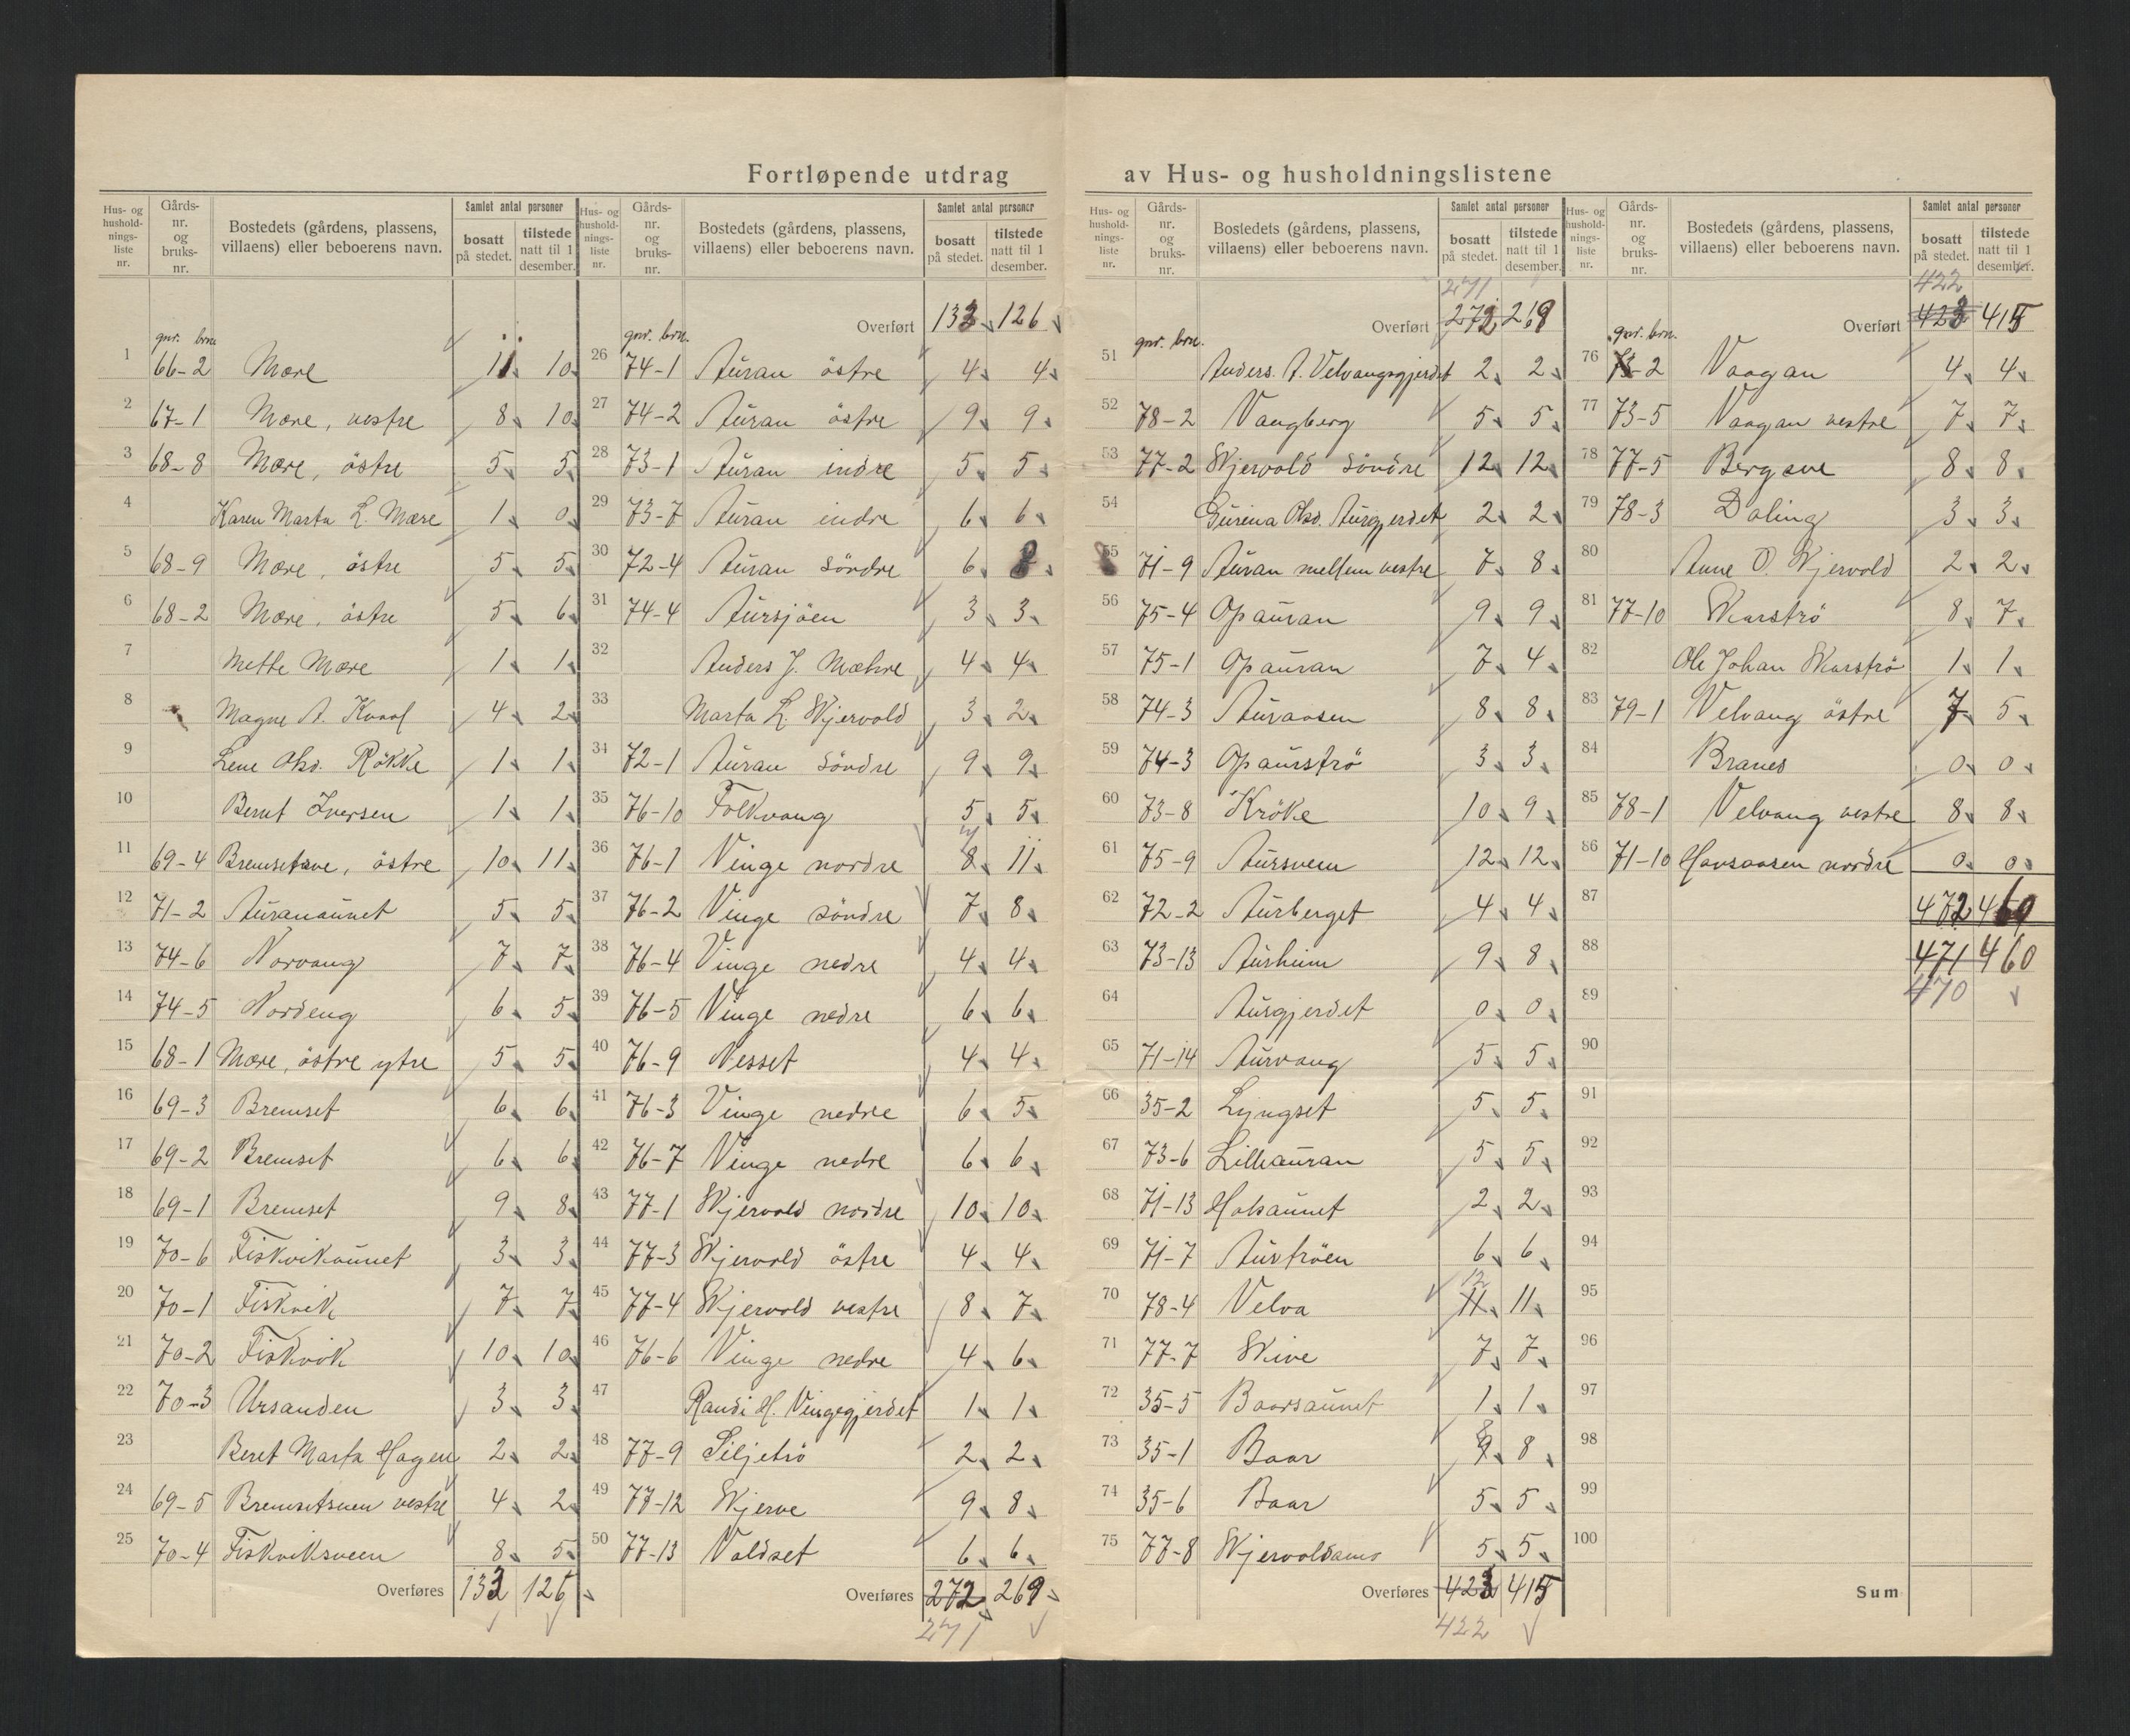 Fortløpende utdrag av Hus- og husholdningslistene
Hus- og hushold-nings-liste nr. | Gårds-nr. og bruks-nr. | Bostedets (gårdens, plassens, villaens) eller beboerens navn. | Samlet antal personer | bosatt på stedet. | tilstede natt til 1 desember.
gnr. brn.
1 66-2 Mære 11 10
2 67-1 Mære, vestre 8 10
3 68-8 Mære, östre 5 5
4 Karen Marta L. Mære 1 0
5 68-9 Mære, östre 5 5
6 68-2 Mære, östre 5 6
7 Mette Mære 1 1
8 Magne A. 4 2
9 Lene Olsd. Rökke 1 1
10 Bernt Iversen 1 1
11 69-4 östre 10 11
12 71-2 Auranaunet 5 5
13 74-6 Norvang 7 7
14 74-5 Nordeng 6 5
15 68-1 Mære, östre ytre 5 5
16 69-3 Bremset 6 6
17 69-2 Bremset 6 6
18 69-1 Bremset 9 8
19 70-6 Fiskvikaunet 3 3
20 70-1 Fiskvik 7 7
21 70-2 Fiskvik 10 10
22 70-3 Ursanden 3 3
23 Beret Marta Hagen 2 2
24 69-5 Bremsetsveen vestre 4 2
25 70-4 Fiskviksveen 8 5
Overføres 133 126
Hus- og hushold-nings-liste nr. | Gårds-nr. og bruks-nr. | Bostedets (gårdens, plassens, villaens) eller beboerens navn. | Samlet antal personer | bosatt på stedet. | tilstede natt til 1 desember.
gnr. brn. Overført 133 126
26 74-1 Auran östre 4 4
27 74-2 Auran östre 9 9
28 73-1 Auran indre 5 5
29 73-7 Auran indre 6 6
30 72-4 Auran söndre 6 8
31 74-4 Aursjöen 3 3
32 Anders J. Mæhre 4 4
33 Marta L. Skjervold 3 2
34 72-1 Auran söndre 9 9
35 76-10 Folkvang 5 5
36 76-1 Vinge nordre 8 11
37 76-2 Vinge söndre 7 8
38 76-4 Vinge nedre 4 4
39 76-5 Vinge nedre 6 6
40 76-9 Nesset 4 4
41 76-3 Vinge nedre 6 5
42 76-7 Vinge nedre 6 6
43 77-1 Skjervold nordre 10 10
44 77-3 Skjervold östre 4 4
45 77-4 Skjervold vestre 8 7
46 76-6 Vinge nedre 4 6
47 Randi H. Vingegjerdet 1 1
48 77-9 Siljetrö 2 2
49 77-12 Skjerve 9 8
50 77-13 Valdset 6 6
Overføres 272 269
271
Hus- og hushold-nings-liste nr. | Gårds-nr. og bruks-nr. | Bostedets (gårdens, plassens, villaens) eller beboerens navn. | Samlet antal personer | bosatt på stedet. | tilstede natt til 1 desember.
271
gnr. brn. Overført 272 269
51 Anders A. Velvangsgjerdet 2 2
52 78-2 Vangberg 5 5
53 77-2 Skjervold söndre 12 12
54 Gurina Olsd. Aurgjerdet 2 2
55 71-9 Auran mellem vestre 7 8
56 75-4 Opauran 9 9
57 75-1 Opauran 7 4
58 74-3 Auraasen 8 8
59 74-3 Opaurströ 3 3
60 73-8 Kröke 10 9
61 75-9 Aursveen 12 12
62 72-2 Aurberget 4 4
63 73-13 Aurheim 9 8
64 Aurgjerdet 0 0
65 71-14 Aurvang 5 5
66 35-2 Lyngset 5 5
67 73-6 Lilleauran 5 5
68 71-13 2 2
69 71-7 Aurtröen 6 6
70 78-4 Velva 12 11 11
71 77-7 Skive 7 7
72 35-5 Baarsaunet 1 1
73 35-1 Baar 8 9 8
74 35-6 Baar 5 5
75 77-8 5 5
Overføres 423 415
422
Hus- og hushold-nings-liste nr. | Gårds-nr. og bruks-nr. | Bostedets (gårdens, plassens, villaens) eller beboerens navn. | Samlet antal personer | bosatt på stedet. | tilstede natt til 1 desember.
422
gnr. brn. Overført 423 415
76 Vaagan 4 4
77 73-5 Vaagan vestre 7 7
78 77-5 Bergsve 8 8
79 78-3 Daling 3 3
80 Anne O. Skjervold 2 2
81 77-10 Skarströ 8 7
82 Ole Johan Skarströ 1 1
83 79-1 Velvang östre 7 5
84 Branes 0 0
85 78-1 Velvang vestre 8 8
86 71-10 Havsaasen nordre 0 0
87 472 460
88 471 460
89 470
90
91
92
93
94
95
96
97
98
99
100
Sum